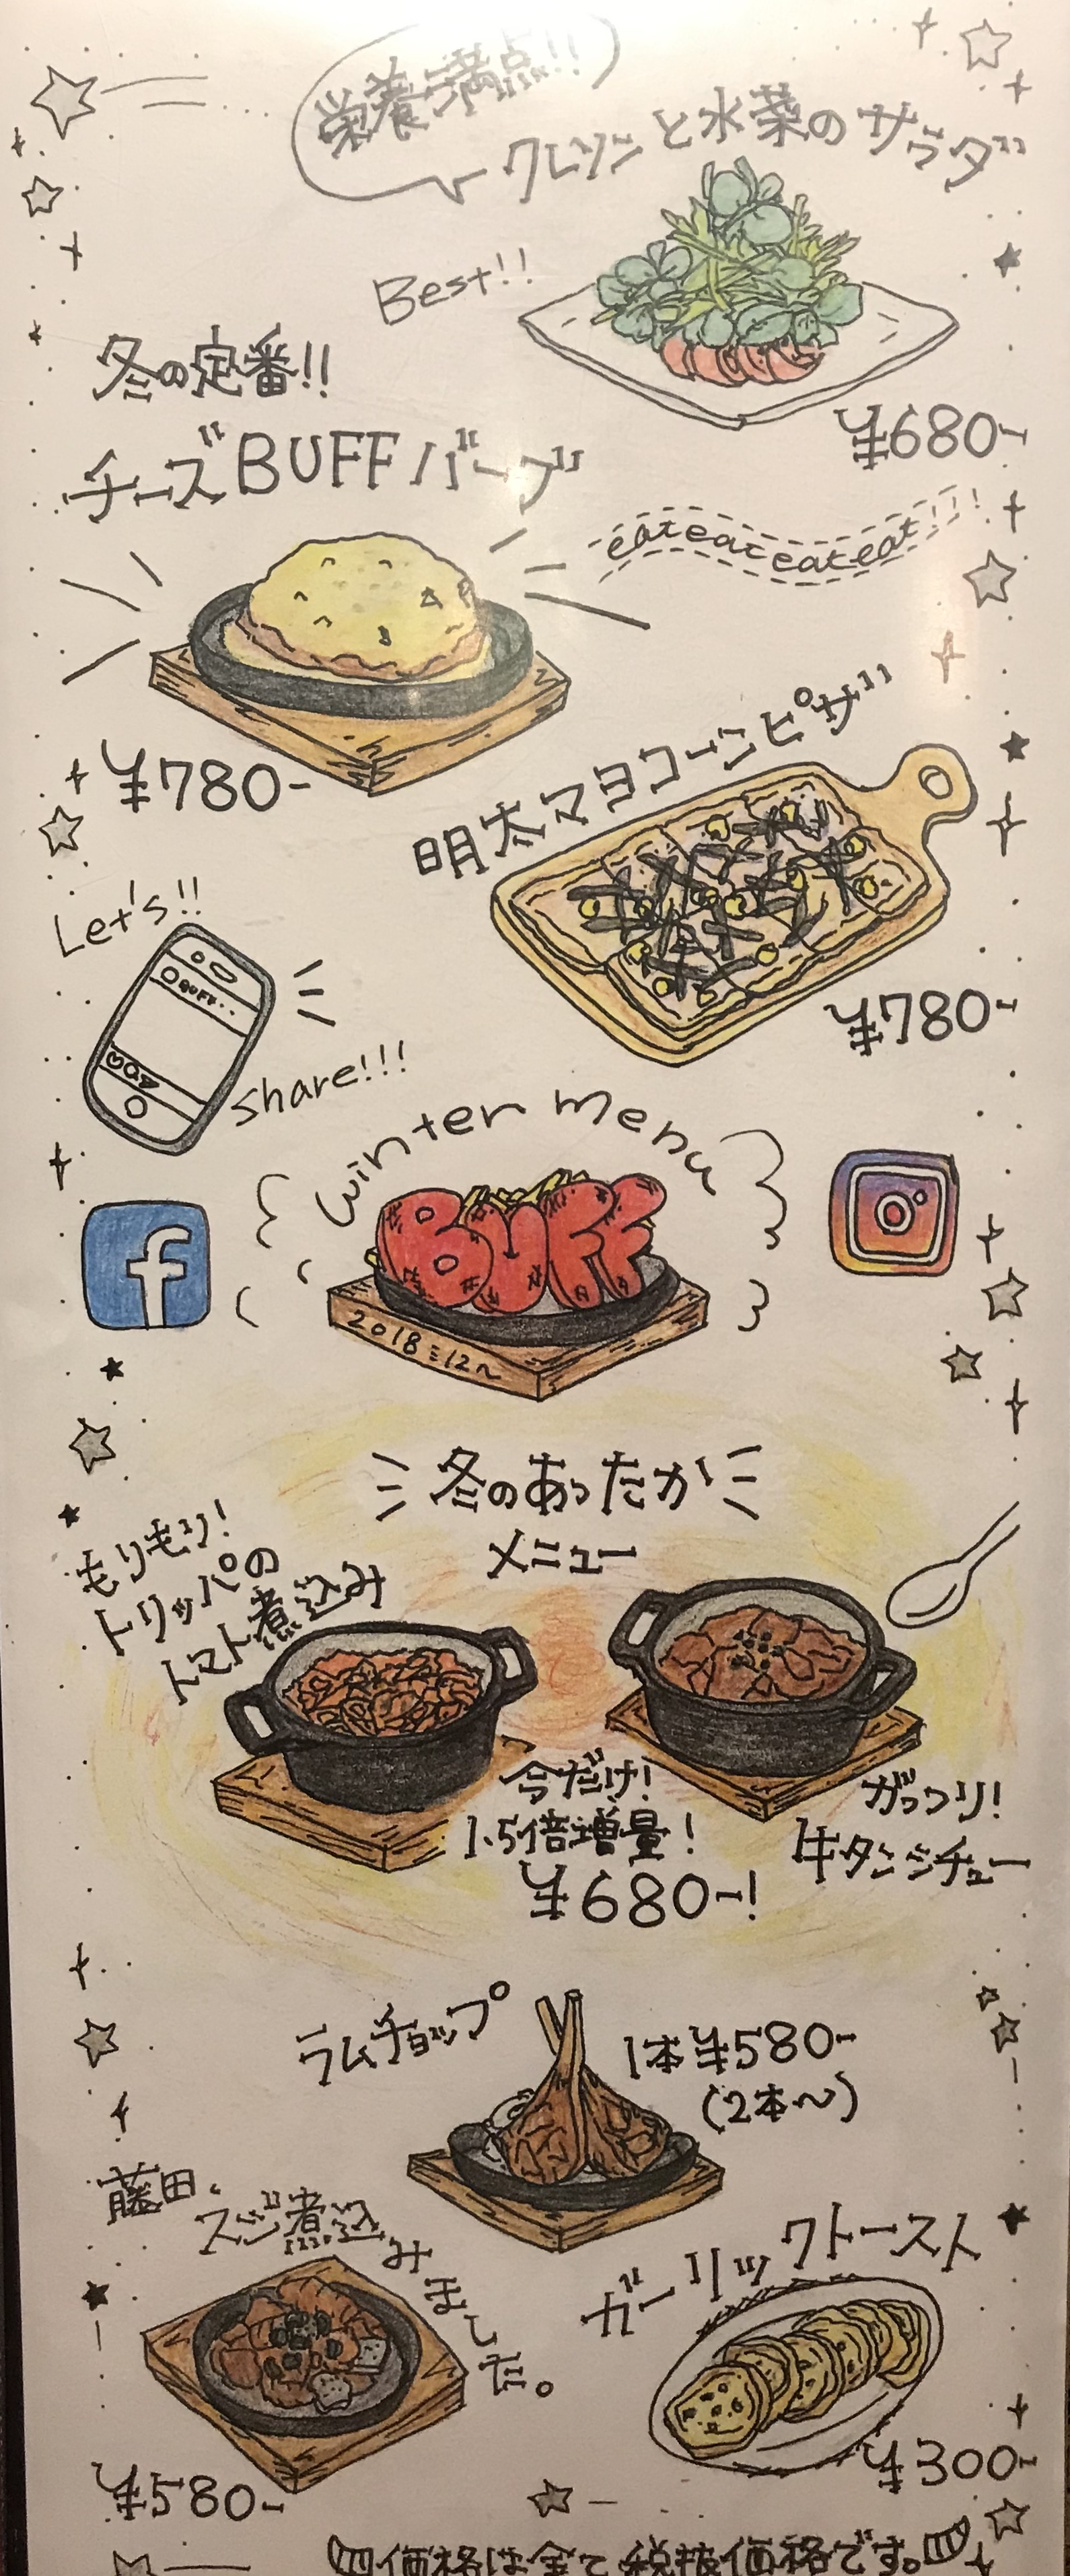 栄養満点!!
クレソンと水菜のサラダ
Best!!
¥680-
冬の定番!!
チーズBUFFバーグ
eateateateat!!!
¥780-
明太マヨコーンピザ
¥780-
Let's!!
BUFF..
share!!!
winter menu
BUFF
f
2018:12~
冬のあったか
メニュー
もりもり!
トリッパの
トマト煮込み
今だけ!
1.5倍増量!
¥680-!
ガッツリ!
牛タンシチュー
ラムチョップ
1本¥580-
(2本~)
藤田、
スジ煮込みました。
¥580-
ガーリックトースト
¥300-
価格は全て税抜価格です。